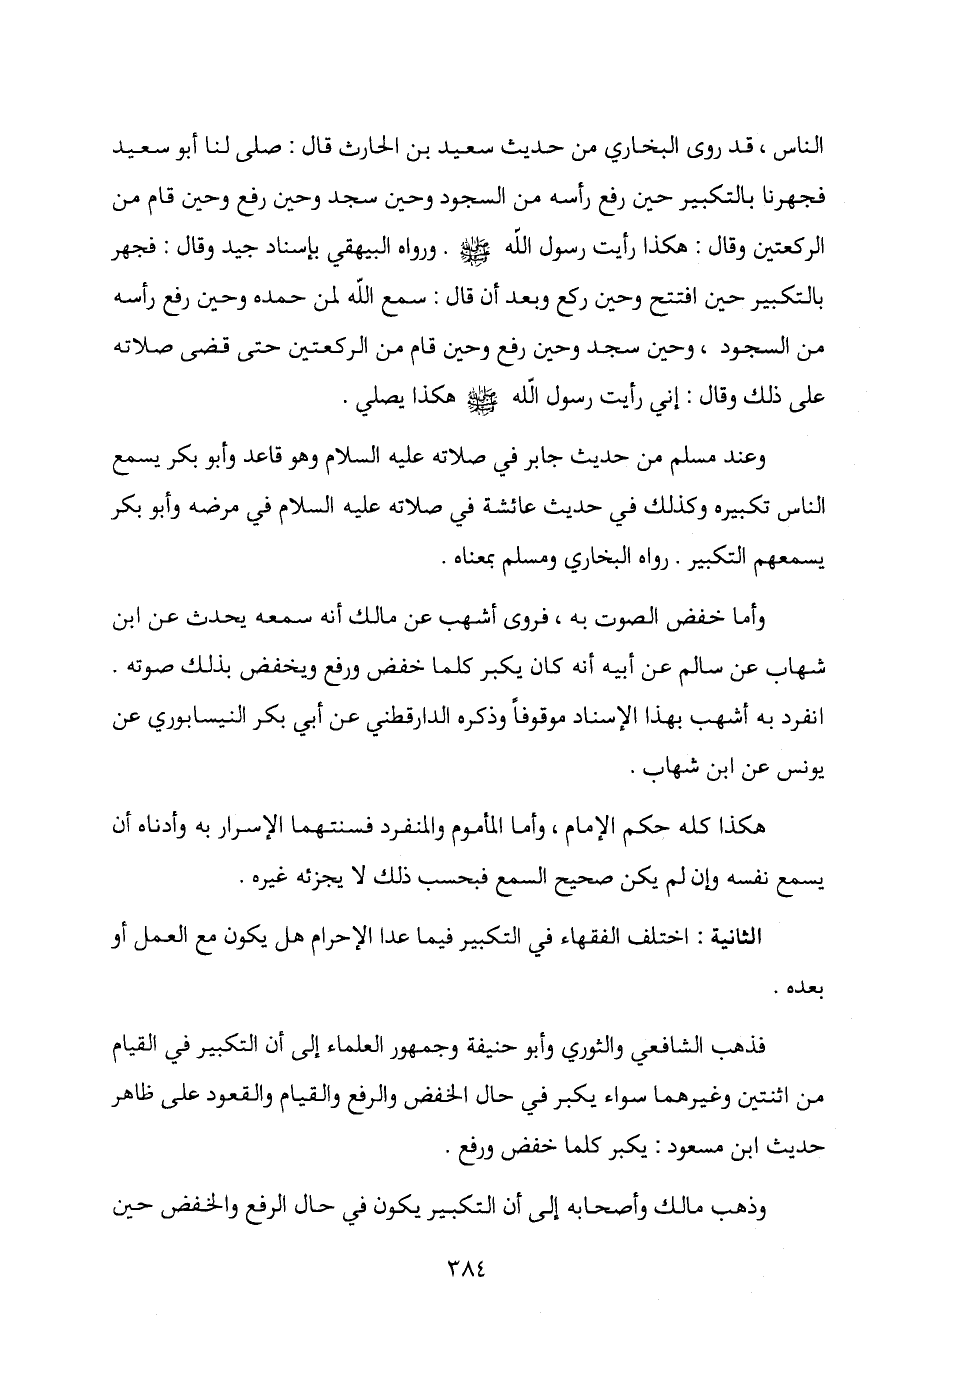 الناس ، قد روى البخاري من حديث سعيد بن الحارث قال : صلى لنا أبو سعيد
فجهرنا بالتكبير حين رفع رأسه من السجود وحين سجد وحين رفع وحين قام من
الركعتين وقال : هكذا رأيت رسول اللّه ﷺ . ورواه البيهقي بإسناد جيد وقال : فجهر
بالتكبير حين افتتح وحين ركع وبعد أن قال : سمع اللّه لمن حمده وحين رفع رأسه
من السجود ، وحين سجد وحين رفع وحين قام من الركعتين حتى قضى صلاته
على ذلك وقال : إني رأيت رسول اللّه ﷺ هكذا يصلي .
وعند مسلم من حديث جابر في صلاته عليه السلام وهو قاعد وأبو بكر يسمع
الناس تكبيره وكذلك في حديث عائشة في صلاته عليه السلام في مرضه وأبو بكر
يسمعهم التكبير . رواه البخاري ومسلم بمعناه .
وأما خفض الصوت به ، فروى أشهب عن مالك أنه سمعه يحدث عن ابن
شهاب عن سالم عن أبيه أنه كان يكبر كلما خفض ورفع ويخفض بذلك صوته .
انفرد به أشهب بهذا الإسناد موقوفاً وذكره الدارقطني عن أبي بكر النيسابوري عن
يونس عن ابن شهاب .
هكذا كله حكم الإمام ، وأما المأموم والمنفرد فسنتهما الإسرار به وأدناه أن
يسمع نفسه وإن لم يكن صحيح السمع فبحسب ذلك لا يجزئه غيره .
الثانية : اختلف الفقهاء في التكبير فيما عدا الإحرام هل يكون مع العمل أو
بعده .
فذهب الشافعي والثوري وأبو حنيفة وجمهور العلماء إلى أن التكبير في القيام
من اثنتين وغيرهما سواء يكبر في حال الخفض والرفع والقيام والقعود على ظاهر
حديث ابن مسعود : يكبر كلما خفض ورفع .
وذهب مالك وأصحابه إلى أن التكبير يكون في حال الرفع والخفض حين
٣٨٤